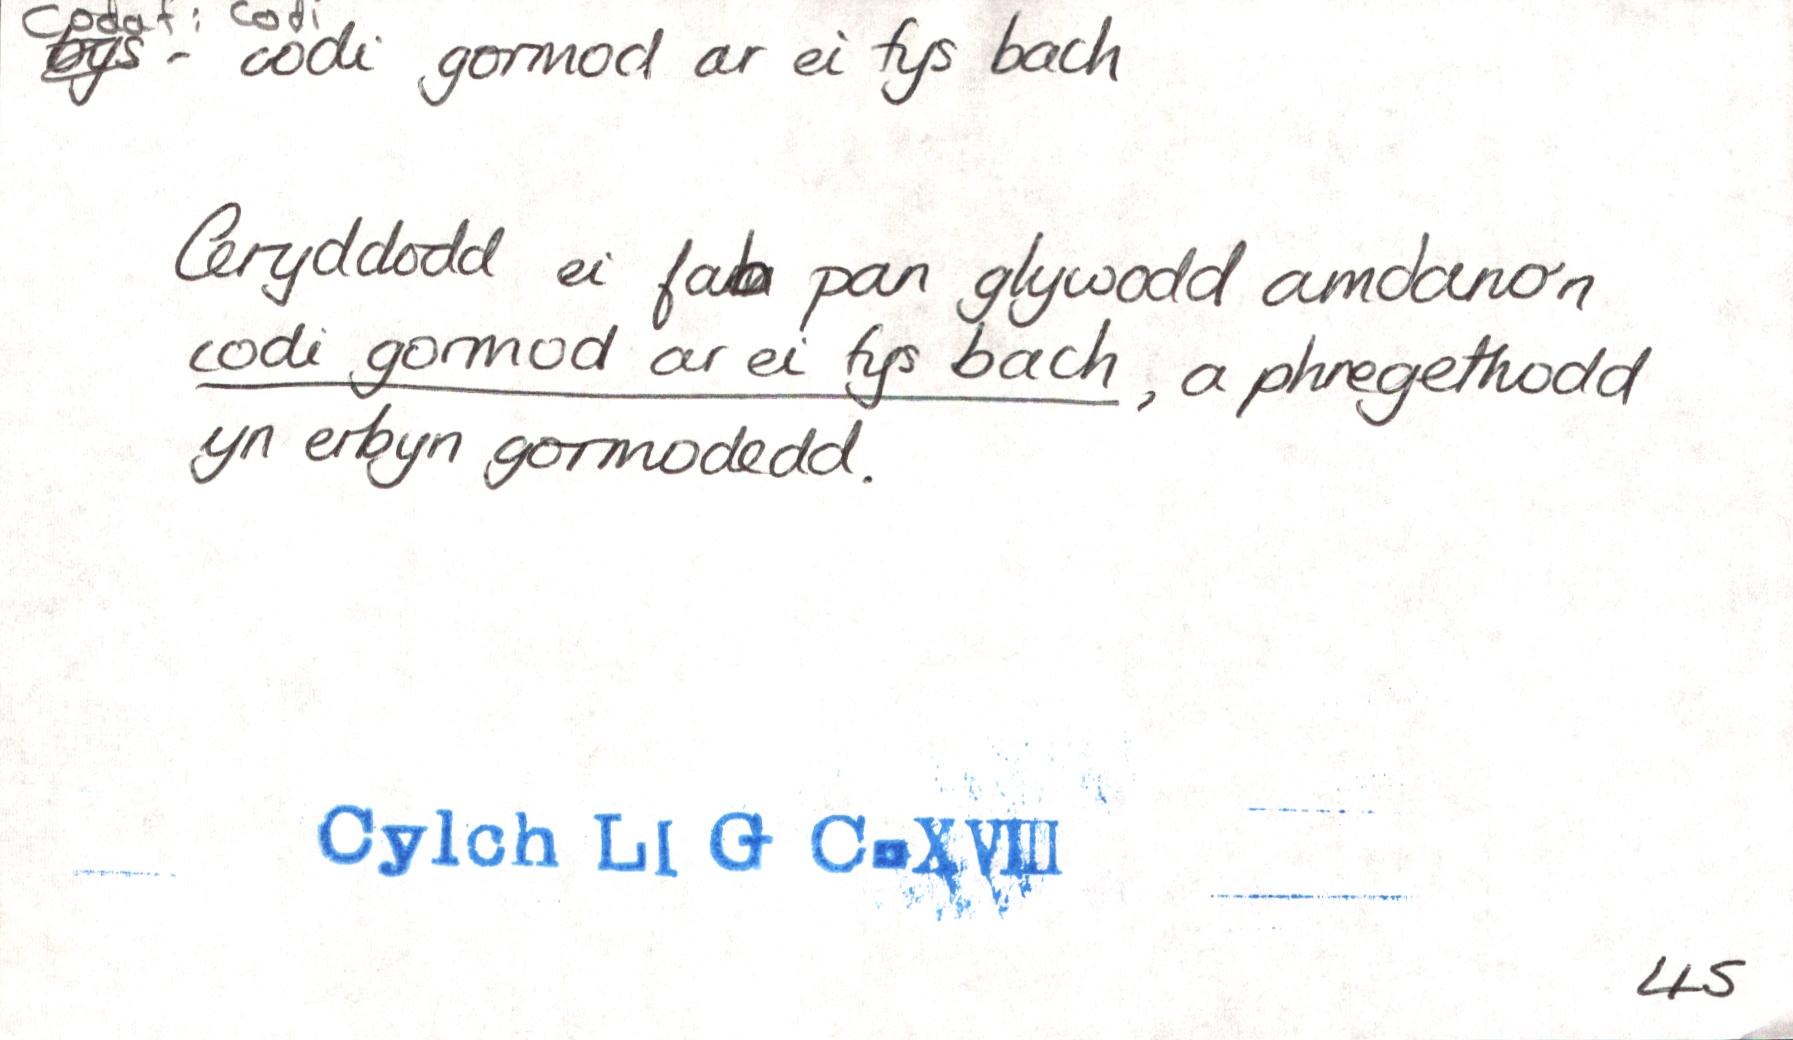 codaf: codi
bys - codi gormod ar ei fys bach
Ceryddodd ei fab pan glywodd amdano'n
codi gormod ar ei fys bach, a phregethodd
yn erbyn gormodedd.
Cylch Ll G C-XVIII
45